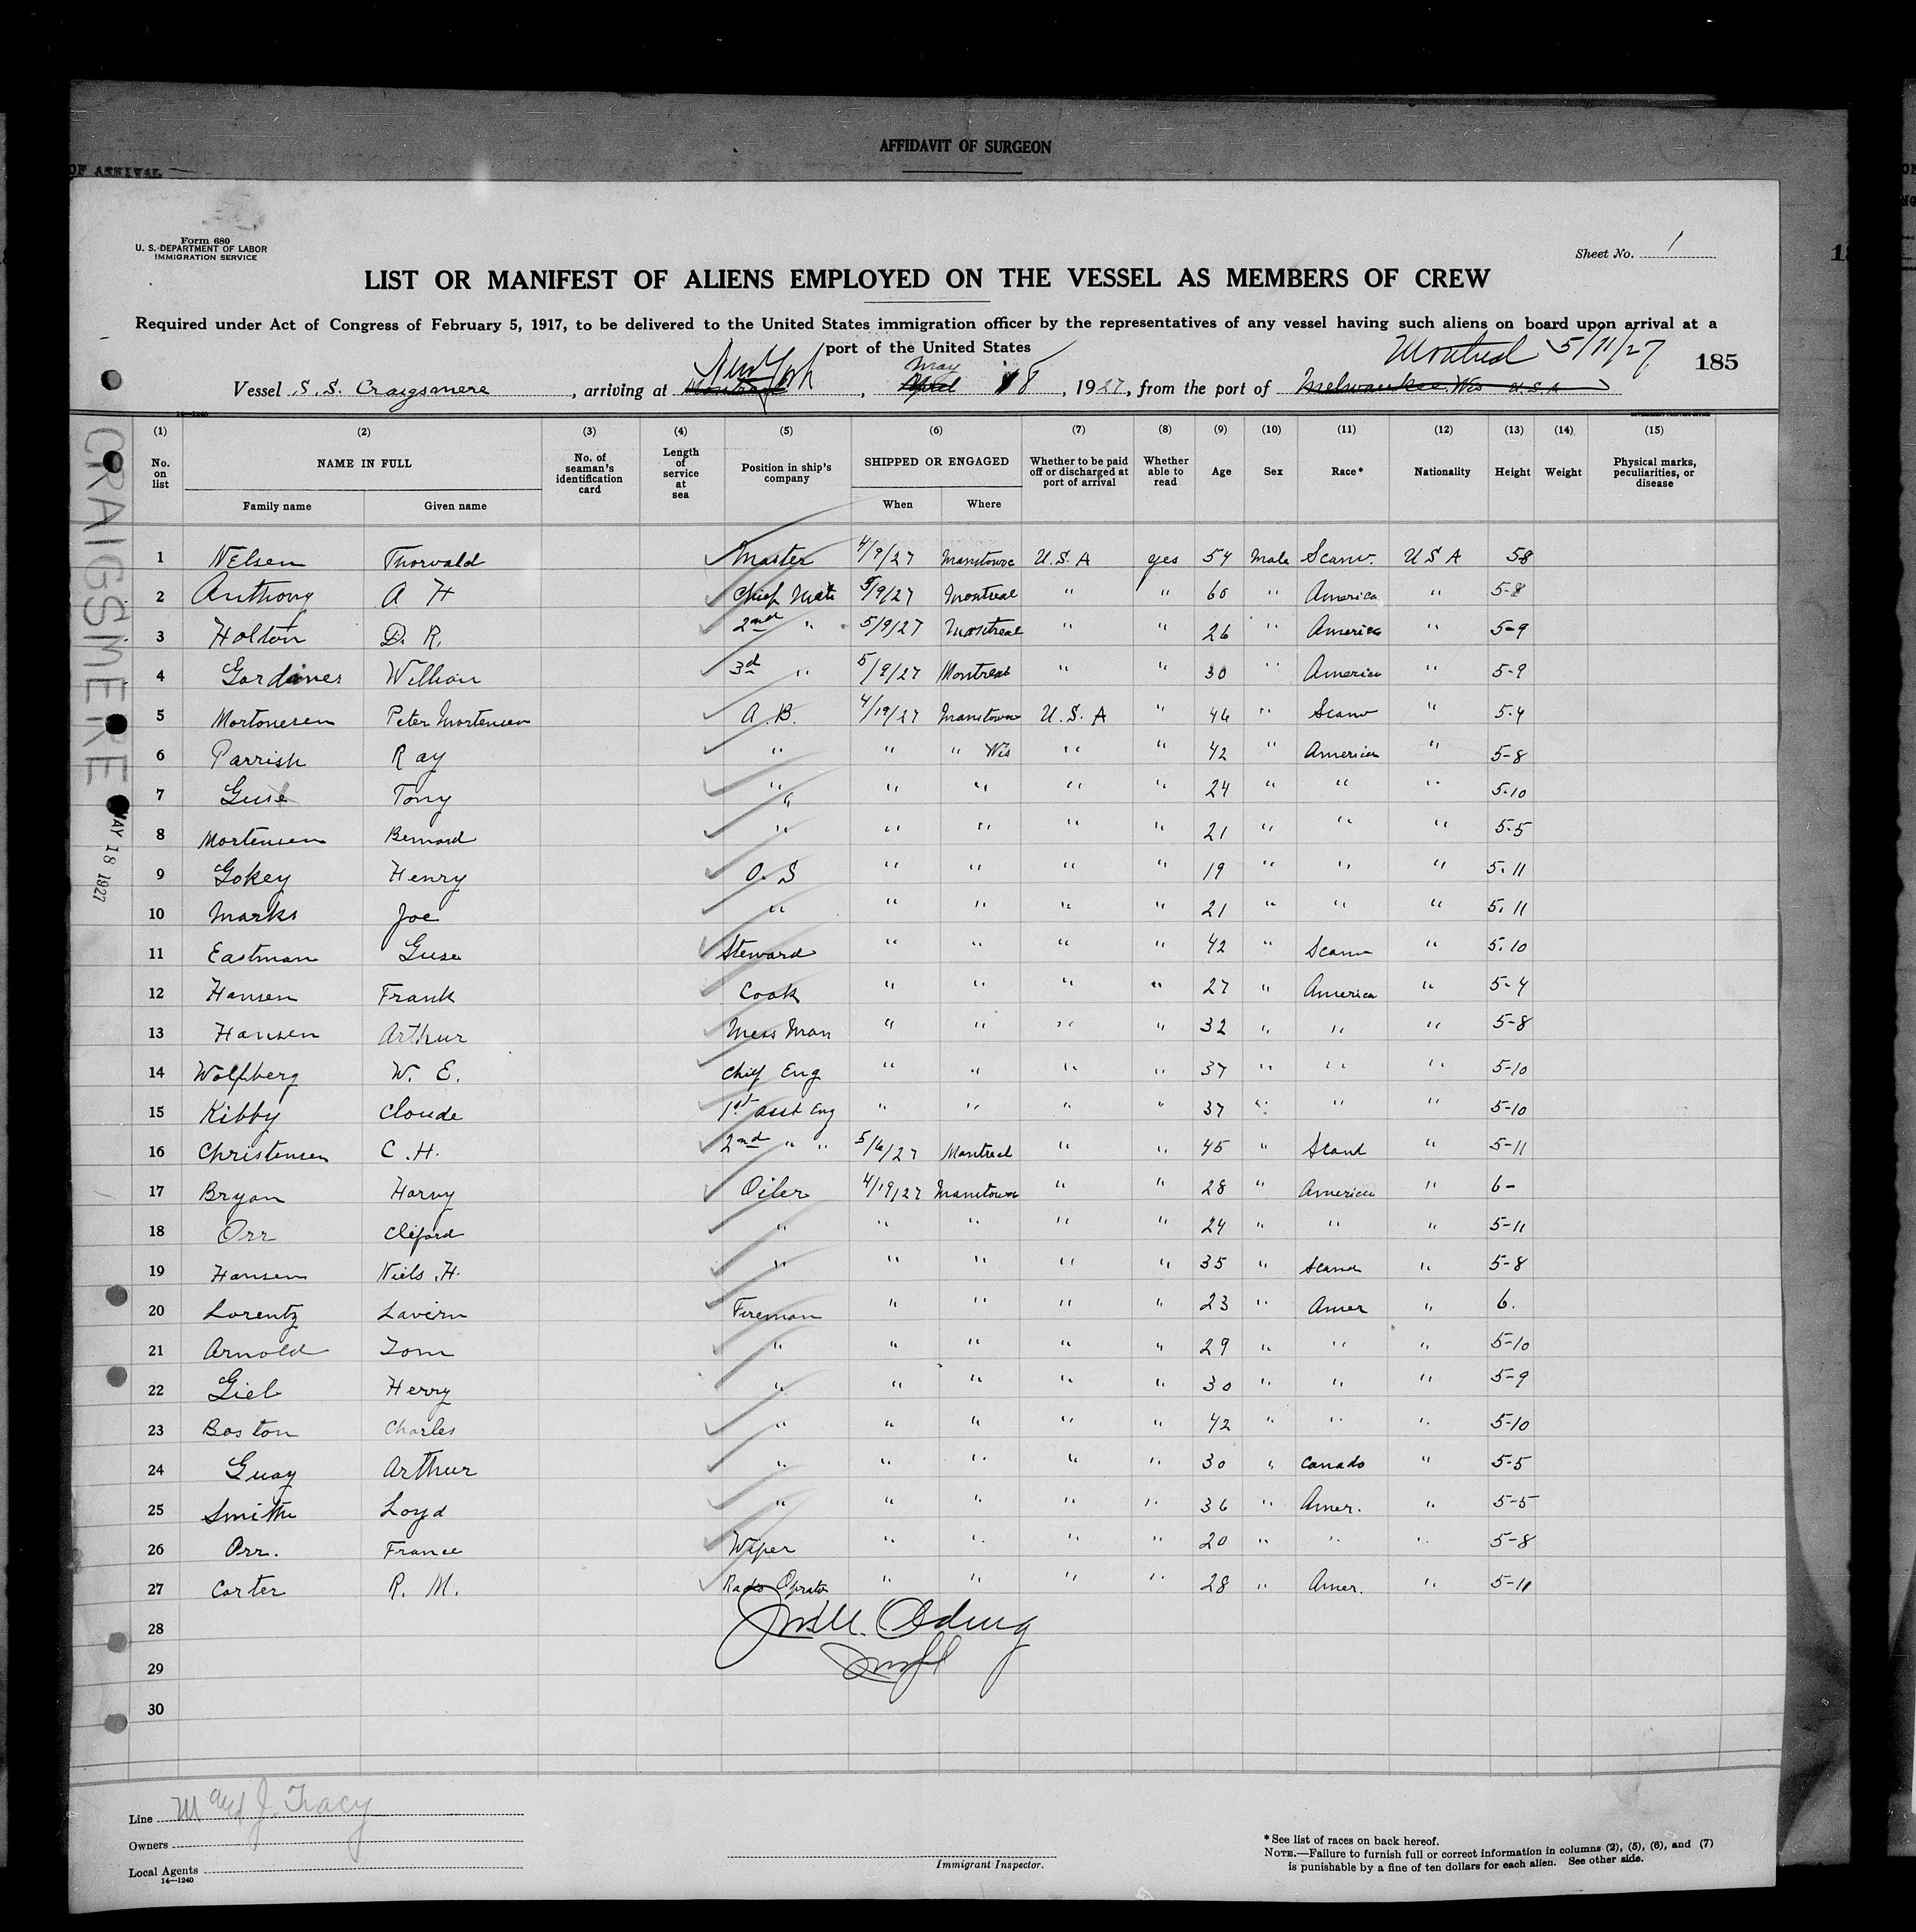 AFFIDAVIT OF SURGEON
OF ARRIVAL
Form 680
U. S. DEPARTMENT OF LABOR
IMMIGRATION SERVICE
Sheet No. 1
LIST OR MANIFEST OF ALIENS EMPLOYED ON THE VESSEL AS MEMBERS OF CREW
Required under Act of Congress of February 5, 1917, to be delivered to the United States immigration officer by the representatives of any vessel having such aliens on board upon arrival at a
port of the United States
New York May Montreal 5/11/27 185
Vessel S.S. Craigsmere, arriving at Montreal, April 18, 1927, from the port of Melwaukee. Wis U.S.A
14-1240
CRAIGSMERE MAY 18 1927
(1) (2) (3) (4) (5) (6) (7) (8) (9) (10) (11) (12) (13) (14) (15)
No. on list NAME IN FULL No. of seaman's identification card Length of service at sea Position in ship's company SHIPPED OR ENGAGED Whether to be paid off or discharged at port of arrival Whether able to read Age Sex Race* Nationality Height Weight Physical marks, peculiarities, or disease
Family name Given name When Where
1 Nelsen Thorvald Master 4/9/27 Manetowoc U.S.A yes 54 Male Scanv. U S A 58
2 Anthony A H Chief Mate 5/9/27 Montreal " " 60 " America " 5-8
3 Holton D. R. 2nd " 5/9/27 Montreal " " 26 " America " 5-9
4 Gardiner William 3d " 5/9/27 Montreal " " 30 " America " 5-9
5 Mortonesen Peter Mortensen A.B. 4/19/27 Manetowoc U.S.A " 46 " Scanv " 5.4
6 Parrish Ray " " " Wis " " 42 " America " 5-8
7 Guse Tony " " " " " 24 " " " 5.10
8 Mortensen Bernard " " " " " 21 " " " 5.5
9 Gokey Henry O.S " " " " 19 " " " 5.11
10 Marks Joe " " " " " 21 " " " 5.11
11 Eastman Guse Steward " " " " 42 " Scanv " 5.10
12 Hansen Frank Cook " " " " 27 " America " 5-4
13 Hansen Arthur Mess Man " " " " 32 " " " 5-8
14 Wolfberg W. E. Chief Eng " " " " 37 " " " 5-10
15 Kibby Cloude 1st asst Eng " " " " 37 " " " 5-10
16 Christensen C.H. 2nd " " 5/6/27 Montreal " " 45 " Scand " 5-11
17 Bryan Harvy Oiler 4/19/27 Manetowoc " " 28 " America " 6-
18 Orr Cliford " " " " " 24 " " " 5-11
19 Hansen Niels.H. " " " " " 35 " Scand " 5-8
20 Lorentz Lavern Fireman " " " " 23 " Amer " 6.
21 Arnold Tom " " " " " 29 " " " 5-10
22 Giel Henry " " " " " 30 " " " 5-9
23 Boston Charles " " " " " 42 " " " 5-10
24 Guay Arthur " " " " " 30 " Canada " 5-5
25 Smith Loyd " " " " " 36 " Amer. " 5-5
26 Orr. France Wiper " " " " 20 " " " 5-8
27 Carter R. M. Radio Oprator " " " " 28 " Amer. " 5-11
28
29
30
Line M and J. Tracy
Owners
Local Agents
14—1240
Immigrant Inspector.
*See list of races on back hereof.
NOTE.—Failure to furnish full or correct information in columns (2), (5), (6), and (7)
is punishable by a fine of ten dollars for each alien. See other side.